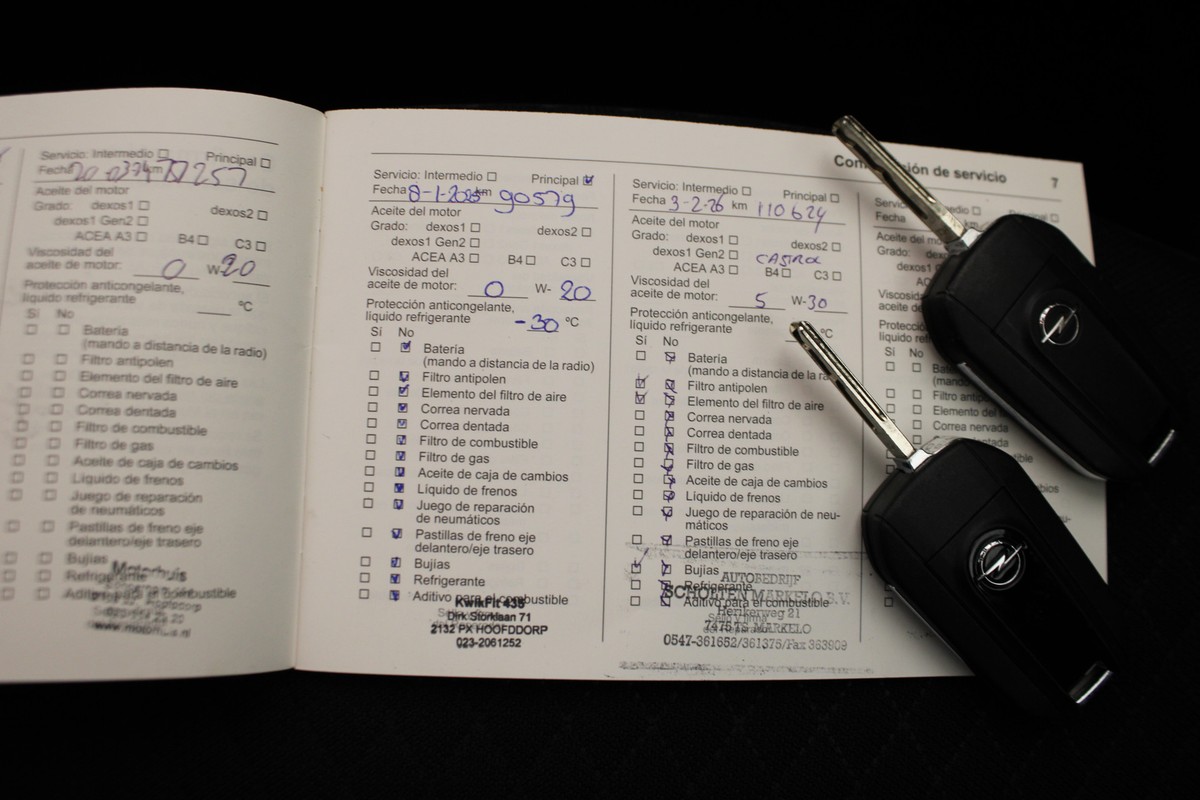 Servicio: Intermedio Principal
Fecha km 77257
Aceite del motor
Grado: dexos1 dexos2
dexos1 Gen2
ACEA A3 B4 C3
Viscosidad del
aceite de motor: 0 W-20
Protección anticongelante,
líquido refrigerante °C
Sí No
Batería
(mando a distancia de la radio)
Filtro antipolen
Elemento del filtro de aire
Correa nervada
Correa dentada
Filtro de combustible
Filtro de gas
Aceite de caja de cambios
Líquido de frenos
Juego de reparación
de neumáticos
Pastillas de freno eje
delantero/eje trasero
Bujías
Refrigerante
Aditivo para el combustible
Motorhuis
Comprobación de servicio 7
Servicio: Intermedio Principal
Fecha 8-1-2025 km 90579
Aceite del motor
Grado: dexos1 dexos2
dexos1 Gen2
ACEA A3 B4 C3
Viscosidad del
aceite de motor: 0 W- 20
Protección anticongelante,
líquido refrigerante -30 °C
Sí No
Batería
(mando a distancia de la radio)
Filtro antipolen
Elemento del filtro de aire
Correa nervada
Correa dentada
Filtro de combustible
Filtro de gas
Aceite de caja de cambios
Líquido de frenos
Juego de reparación
de neumáticos
Pastillas de freno eje
delantero/eje trasero
Bujías
Refrigerante
Aditivo para el combustible
KwikFit 435
Dirk Storklaan 71
2132 PX HOOFDDORP
023-2061252
Servicio: Intermedio Principal
Fecha 3-2-26 km 110624
Aceite del motor
Grado: dexos1 dexos2
dexos1 Gen2 CASTROL
ACEA A3 B4 C3
Viscosidad del
aceite de motor: 5 W-30
Protección anticongelante,
líquido refrigerante °C
Sí No
Batería
(mando a distancia de la ra
Filtro antipolen
Elemento del filtro de aire
Correa nervada
Correa dentada
Filtro de combustible
Filtro de gas
Aceite de caja de cambios
Líquido de frenos
Juego de reparación de neu-
máticos
Pastillas de freno eje
delantero/eje trasero
Bujías
Refrigerante
Aditivo para el combustible
AUTOBEDRIJF
SCHOLTEN MARKELO B.V.
Herikerweg 21
7475 TS MARKELO
0547-361652/361375/Fax 363909
Servicio: Intermedio
Fecha
Aceite del
Grado:
dexos1
Viscosida
aceite de
Protecció
líquido re
Sí No
Bate
(mando
Filtro antip
Elemento del
Correa nervada